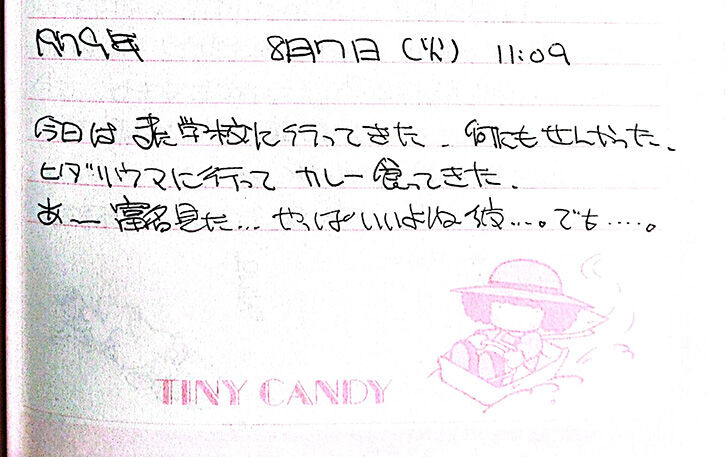 1979年 8月7日(火) 11:09
今日は また学校に行ってきた. 何にもせんかった.
ヒダリウマに行って カレー食ってきた.
あー 富名見た... やっぱいいよね 彼...。でも.....。
TINY CANDY